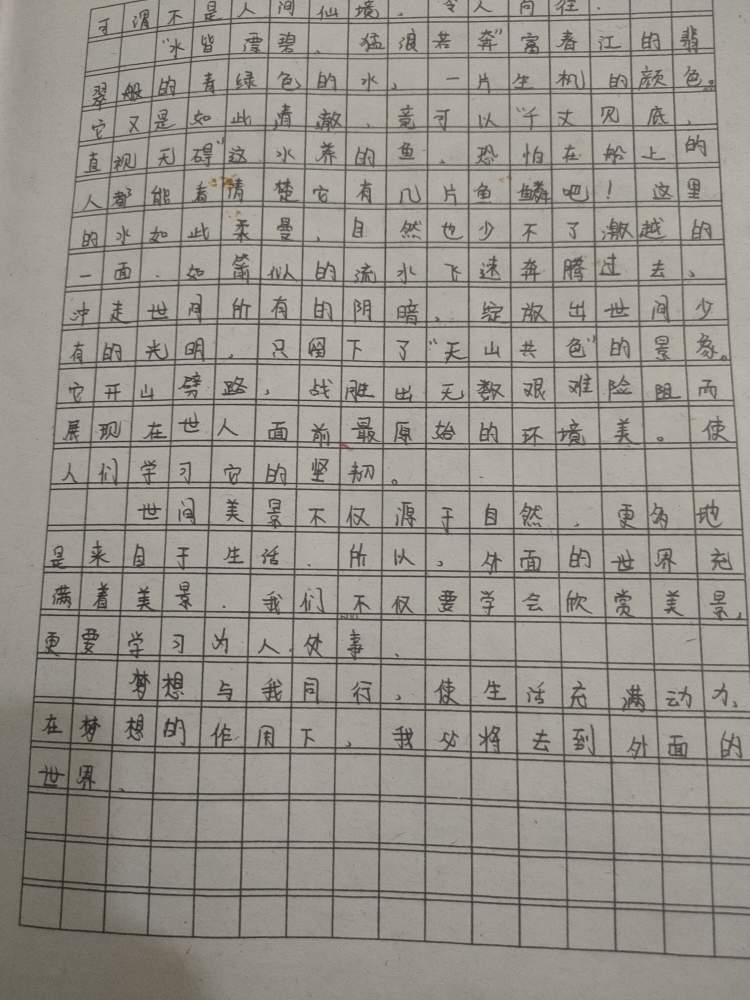 可谓不是人间仙境，令人向往．
“水皆漂碧，猛浪若奔”富春江的翡
翠般的青绿色的水，一片生机的颜色。
它又是如此清澈，竟可以“千丈见底，
直视无碍”这水养的鱼，恐怕在船上的
人都能看清楚它有几片鱼鳞吧！这里
的水如此柔曼，自然也少不了激越的
一面．如箭似的流水飞速奔腾过去，
冲走世间所有的阴暗，绽放出世间少
有的光明，只留下了“天山共色”的景象。
它开山劈路，战胜出无数艰难险阻而
展现在世人面前最原始的环境美。使
人们学习它的坚韧。
世间美景不仅源于自然．更多地
是来自于生活．所以，外面的世界充
满着美景．我们不仅要学会欣赏美景，
更要学习为人处事．
梦想与我同行，使生活充满动力，
在梦想的作用下，我必将去到外面的
世界．